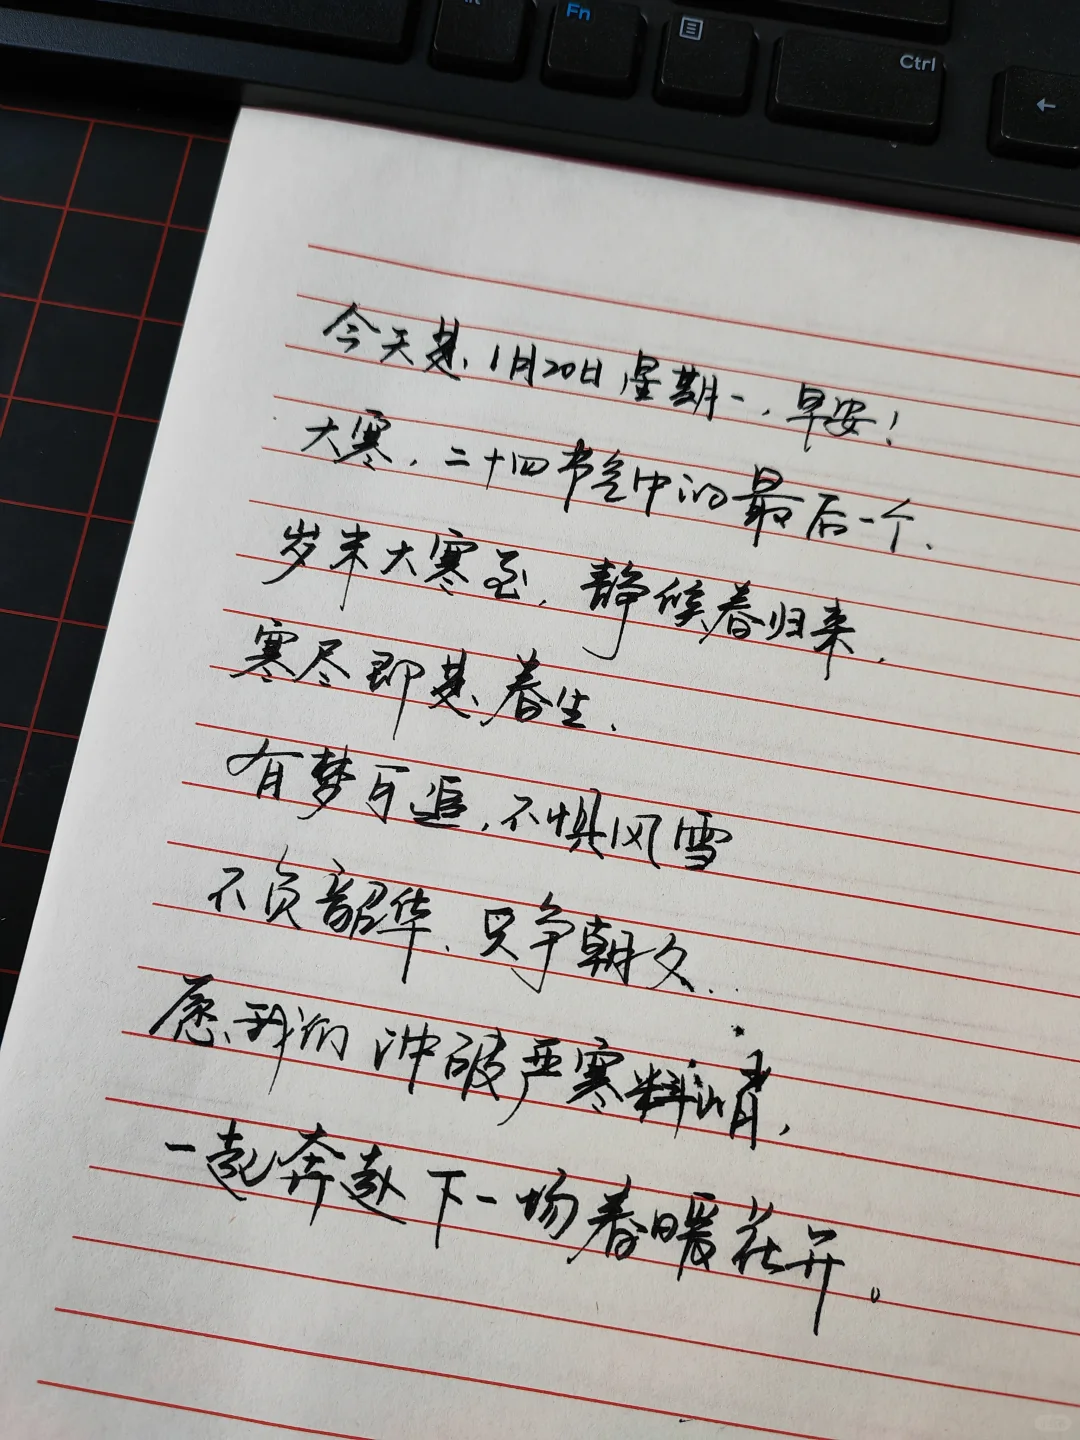 Fn
Ctrl
←
今天是,1月20日星期一,早安!
大寒,二十四节气中的最后一个.
岁末大寒至,静候春归来.
寒尽即是春生.
有梦可追,不惧风雪
不负韶华、只争朝夕..
愿我们冲破严寒料峭,
一起奔赴下一场春暖花开。